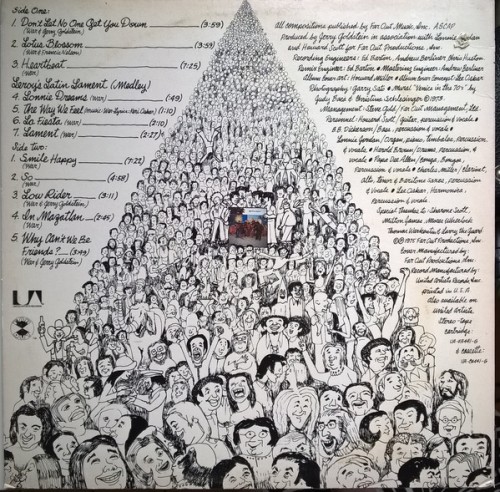 Side One:
1. Don't Let No One Get You Down (3:59)
(War & Jerry Goldstein)
2. Lotus Blossom (3:59)
(War &
3. Heartbeat (7:25)
(War)
Leroy's Latin Lament (Medley)
4. Lonnie Dreams (War) (:49)
5. The Way We Feel (1:10)
6. La Fiesta (War) (2:10)
7. Lament (War) (2:27)
Side Two:
1. Smile Happy (7:22)
(War)
2. So (4:58)
(War)
3. Low Rider (3:11)
(War & Jerry Goldstein)
4. In Mazatlan (2:45)
(War)
5. Why Can't We Be
Friends? (3:49)
(War & Jerry Goldstein)
UA
All compositions published by Far Out Music, Inc., ASCAP
Produced by Jerry Goldstein in association with Lonnie Jordan
and Howard Scott for Far Out Productions, Inc.
Recording Engineers: Ed Barton, Andrew Berliner, Chris Huston
Remix Engineer: Ed Barton • Mastering Engineer: Andrew Berliner
Album cover art: Howard Miller • Album cover concept: Lee Oskar
Photography: Garry
Mural: "Venice in the 70's" by
Judy & Christina Schlesinger © 1975.
Management: Steve Gold, Far Out Management, Ltd.
Personnel: Howard Scott / Guitar, percussion & vocals
B.B. Dickerson / Bass, percussion & vocals •
Lonnie Jordan / Organ, piano, timbales, percussion
& vocals • Harold Brown / Drums, percussion, &
vocals • Papa Dee Allen / Conga, Bongos,
Percussion & vocals • Charles Miller / Clarinet,
Alto, tenor & Baritone saxes, percussion
& vocals • Lee Oskar, Harmonica,
Percussion & vocals
Special Thanks to: Sharone Scott,
Milton James,
Thomas & Larry the Guard
©℗ 1975 Far Out Productions, Inc
Cover Manufactured by
Far Out Productions, Inc
Record Manufactured by
United Artists Records, Inc
Printed in U.S.A.
Also available on
United Artists
Stereo-Tape
Cartridge:
& Cassette: